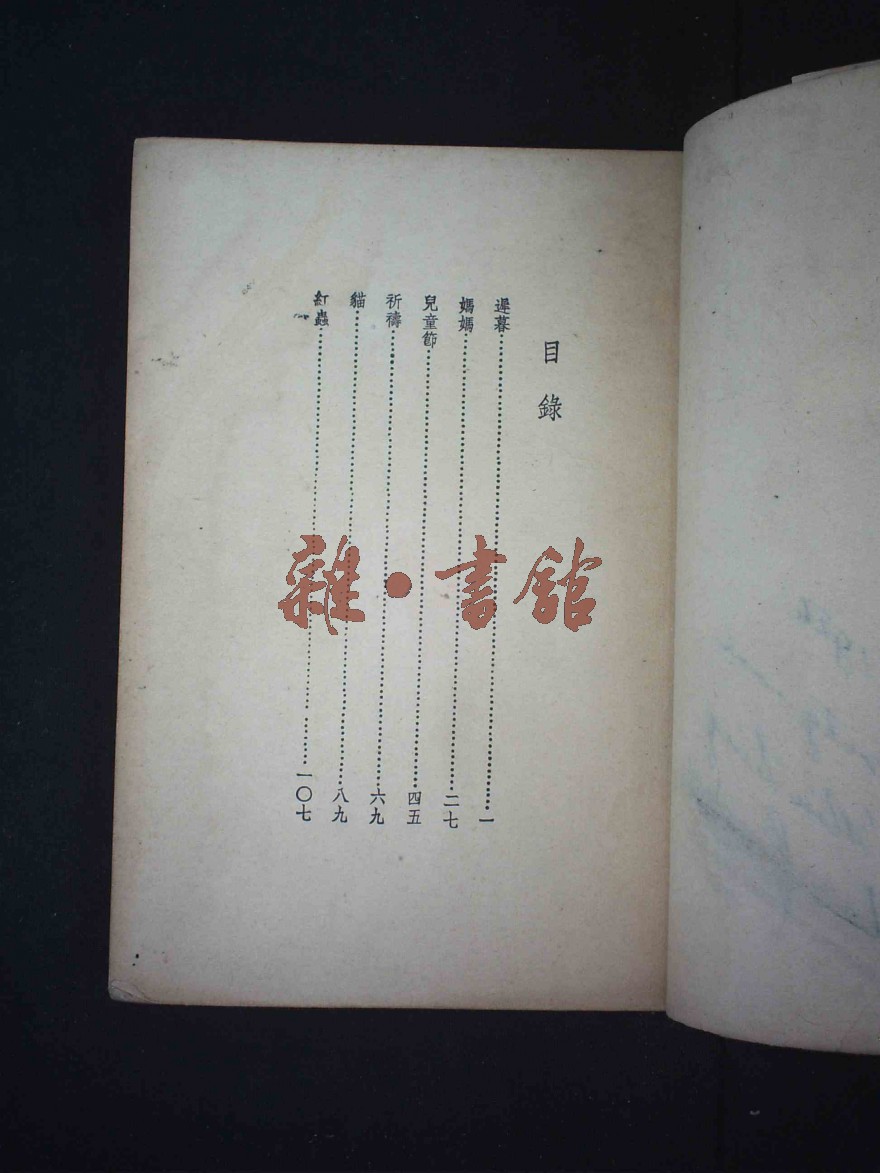 目錄
遲暮……一
媽媽……二七
兒童節……四五
祈禱……六九
貓……八九
紅蟲……一〇七
雜·書館